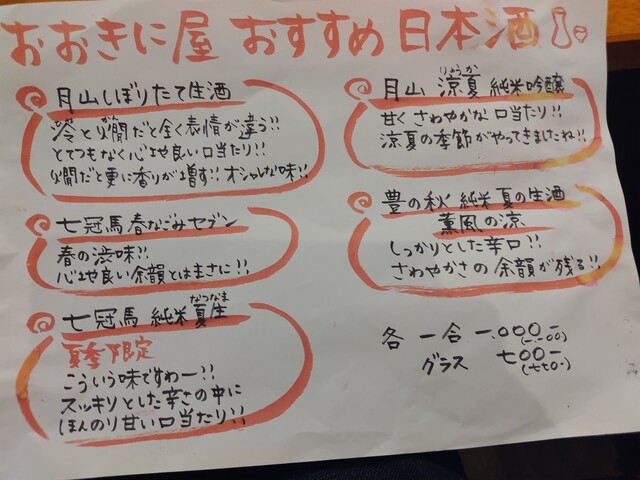 おおきに屋 おすすめ 日本酒
月山しぼりたて生酒
冷と燗だと全く表情が違う!!
とてつもなく心地良い口当たり!!
燗だと更に香りが増す!! オシャレな味!!
七冠馬 春なごみセブン
春の淡味!!
心地良い余韻とはまさに!!
七冠馬 純米 夏生
なつなま
夏季限定
こういう味ですわー!!
スッキリとした辛さの中に
ほんのり甘い口当たり!!
りょうか
月山 涼夏 純米吟醸
甘く さわやかな 口当たり!!
涼夏の季節がやってきましたね!!
豊の秋 純米 夏の生酒
薫風の涼
しっかりとした辛口!!
さわやかさの 余韻が残る!!
各 一合 一,000-
(一,一00)
グラス 七00-
(七七0-)